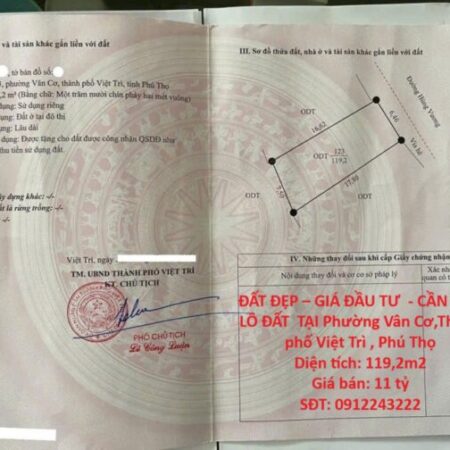 và tài sản khác gắn liền với đất
, tờ bản đồ số:
, phường Vân Cơ, thành phố Việt Trì, tỉnh Phú Thọ
,2 m² (Bằng chữ: Một trăm mười chín phẩy hai mét vuông)
dụng: Sử dụng riêng
dụng: Đất ở tại đô thị
dụng: Lâu dài
dụng: Được tặng cho đất được công nhận QSDĐ như
thu tiền sử dụng đất.
ây dựng khác: -/-
ất là rừng trồng: -/-
Việt Trì, ngày
TM. UBND THÀNH PHỐ VIỆT TRÌ
KT. CHỦ TỊCH
PHÓ CHỦ TỊCH
Lê Công Luận
III. Sơ đồ thửa đất, nhà ở và tài sản khác gắn liền với đất
Đường Hùng Vương
Vỉa hè
ODT
16,82
6,46
ODT
123
119,2
ODT
7,50
17,80
ODT
IV. Những thay đổi sau khi cấp Giấy chứng nhận
Nội dung thay đổi và cơ sở pháp lý
Xác nhận
quan có t
ĐẤT ĐẸP – GIÁ ĐẦU TƯ - CẦN
LÔ ĐẤT TẠI Phường Vân Cơ,Th
phố Việt Trì , Phú Thọ
Diện tích: 119,2m2
Giá bán: 11 tỷ
SĐT: 0912243222